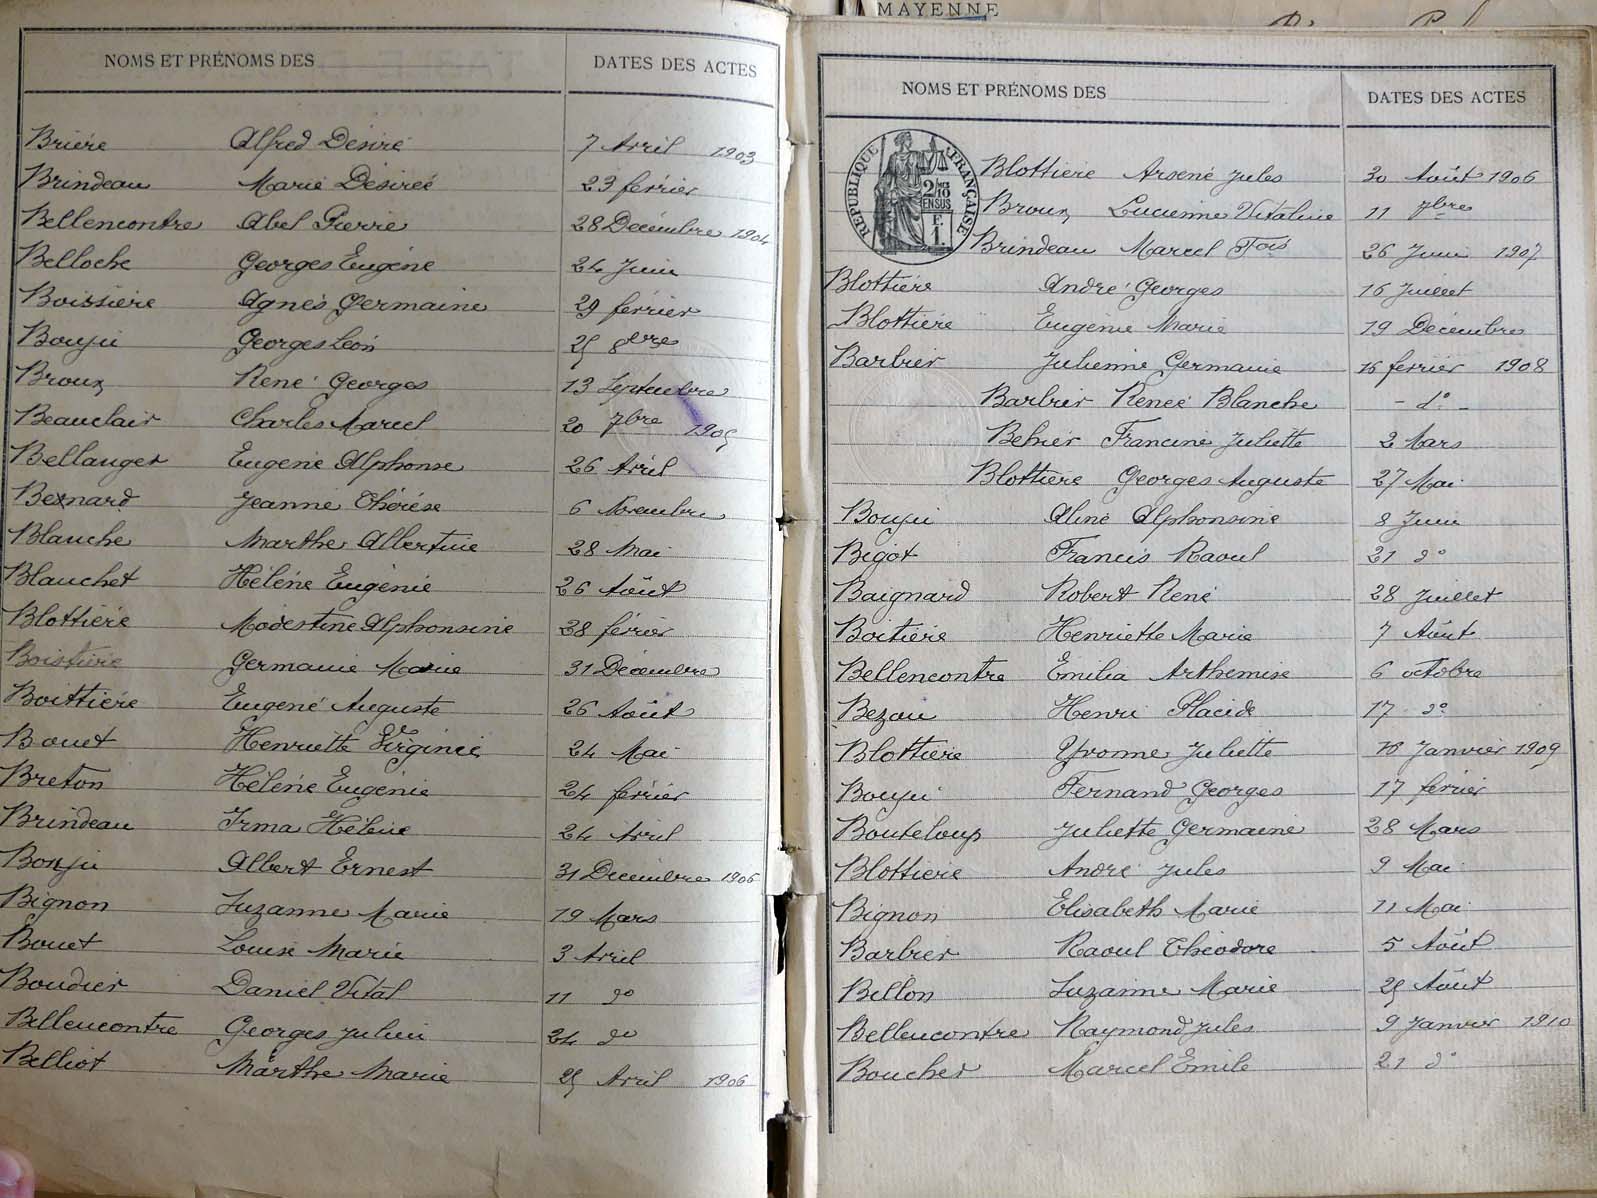 MAYENNE
NOMS ET PRÉNOMS DES DATES DES ACTES
Brière Alfred Désiré 7 Avril 1903
Brindeau Marie Désirée 23 février
Bellencontre Abel Pierre 28 Décembre 1904
Belloche Georges Eugène 24 Juin
Boissière Agnès Germaine 29 février
Bouju Georges Léon 25 8bre
Broux René Georges 13 Septembre
Beauclair Charles Marcel 20 7bre 1905
Bellanger Eugène Alphonse 26 Avril
Besnard Jeanne Thérèse 6 Novembre
Blanche Marthe Albertine 28 Mai
Blanchet Hélène Eugénie 26 Août
Blottière Modestine Alphonsine 28 février
Boistière Germaine Marie 31 Décembre
Boittière Eugène Auguste 26 Août
Bouet Henriette Virginie 24 Mai
Breton Hélène Eugénie 24 février
Brindeau Irma Hélène 24 Avril
Bouju Albert Ernest 31 Décembre 1906
Bignon Suzanne Marie 19 Mars
Bouet Louise Marie 3 Avril
Boudier Daniel Vital 11 do
Bellencontre Georges Julien 24 do
Belliot Marthe Marie 25 Avril 1906
NOMS ET PRÉNOMS DES DATES DES ACTES
RÉPUBLIQUE FRANÇAISE
2/10 EN SUS
F 1
Blottière Arsène Jules 30 Août 1906
Broux Lucienne Vitaline 11 7bre
Brindeau Marcel Fois 26 Juin 1907
Blottière André Georges 16 Juillet
Blottière Eugénie Marie 19 Décembre
Barbier Julienne Germaine 16 février 1908
Barbier Renée Blanche - do -
Behier Francine Juliette 2 Mars
Blottière Georges Auguste 27 Mai
Bouju Aline Alphonsine 8 Juin
Bigot Francis Raoul 21 do
Baignard Robert René 28 Juillet
Boitière Henriette Marie 7 Août
Bellencontre Emilia Arthemise 6 octobre
Bezau Henri Placide 17 do
Blottière Yvonne Juliette 18 Janvier 1909
Bouju Fernand Georges 17 février
Bouteloup Juliette Germaine 28 Mars
Blottière André Jules 9 Mai
Bignon Elisabeth Marie 11 Mai
Barbier Raoul Théodore 5 Août
Billon Suzanne Marie 25 Août
Bellencontre Raymond Jules 9 Janvier 1910
Boucher Marcel Emile 21 do